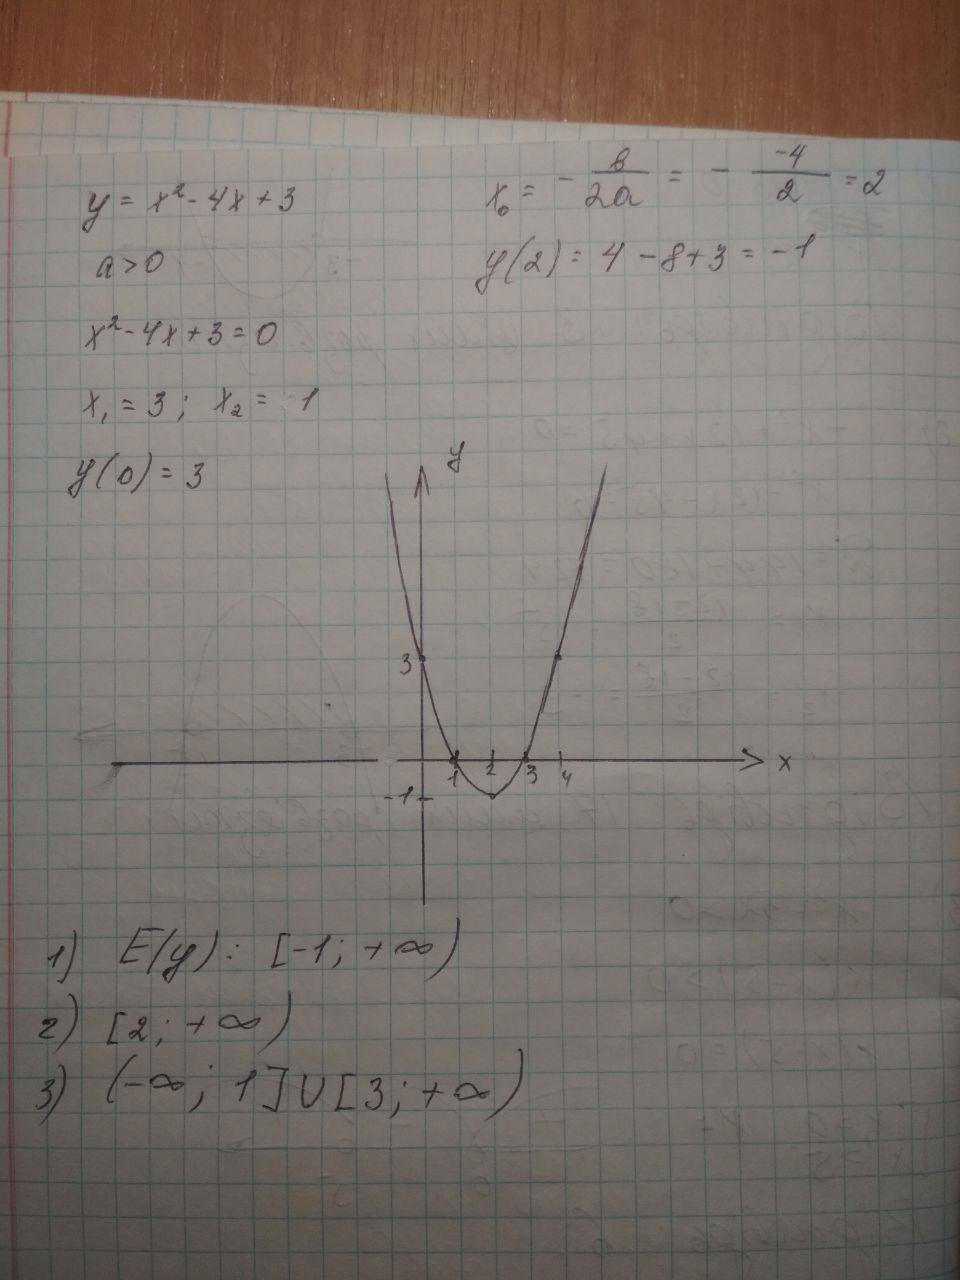 y = x² - 4x + 3
a > 0
x² - 4x + 3 = 0
x₁ = 3; x₂ = 1
y(0) = 3
x₀ = - b/2a = - -4/2 = 2
y(2) = 4 - 8 + 3 = -1
y
3
1 2 3 4 x
-1
1) E(y): [-1; +∞)
2) [2; +∞)
3) (-∞; 1] ∪ [3; +∞)